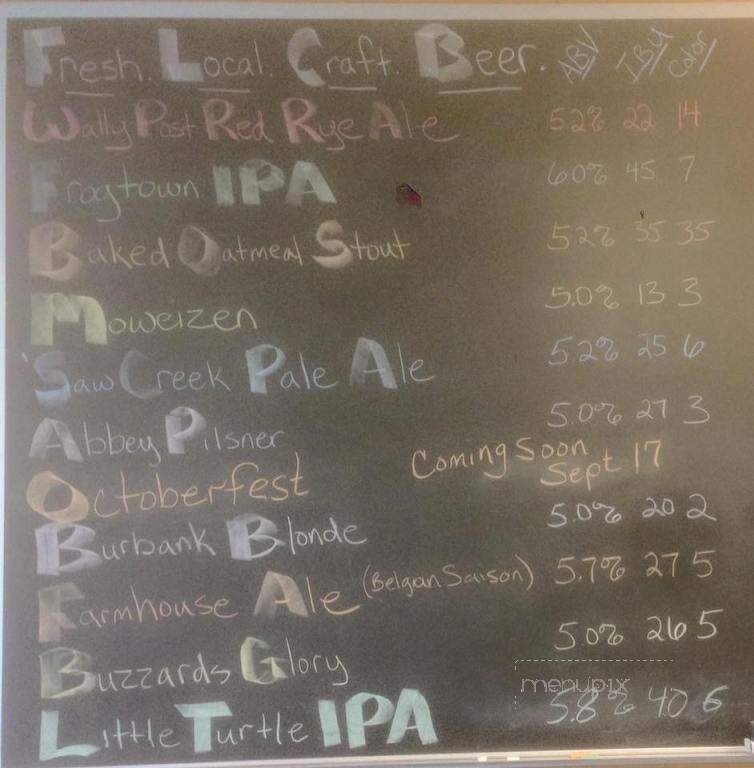 Fresh. Local. Craft. Beer. ABV IBU Color
Wally Post Red Rye Ale 5.2% 22 14
Frogtown IPA 6.0% 45 7
Baked Oatmeal Stout 5.2% 35 35
Moweizen 5.0% 13 3
Saw Creek Pale Ale 5.2% 25 6
Abbey Pilsner 5.0% 27 3
Octoberfest Coming Soon
Sept 17
Burbank Blonde 5.0% 20 2
Farmhouse Ale (Belgan Saison) 5.7% 27 5
Buzzards Glory 5.0% 26 5
menupix
Little Turtle IPA 5.8% 40 6